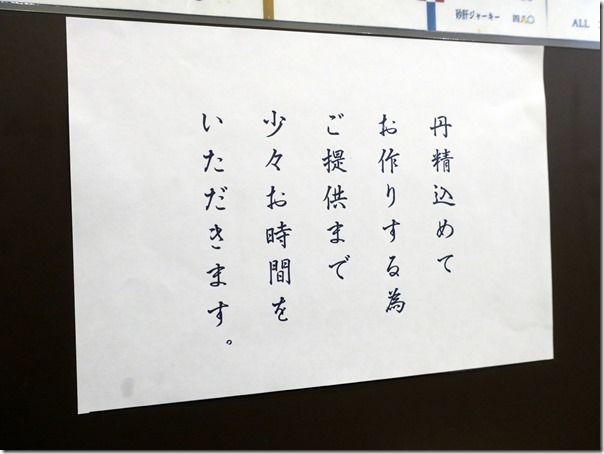 砂肝ジャーキー
ALL
丹精込めて
お作りする為
ご提供まで
少々お時間を
いただきます。